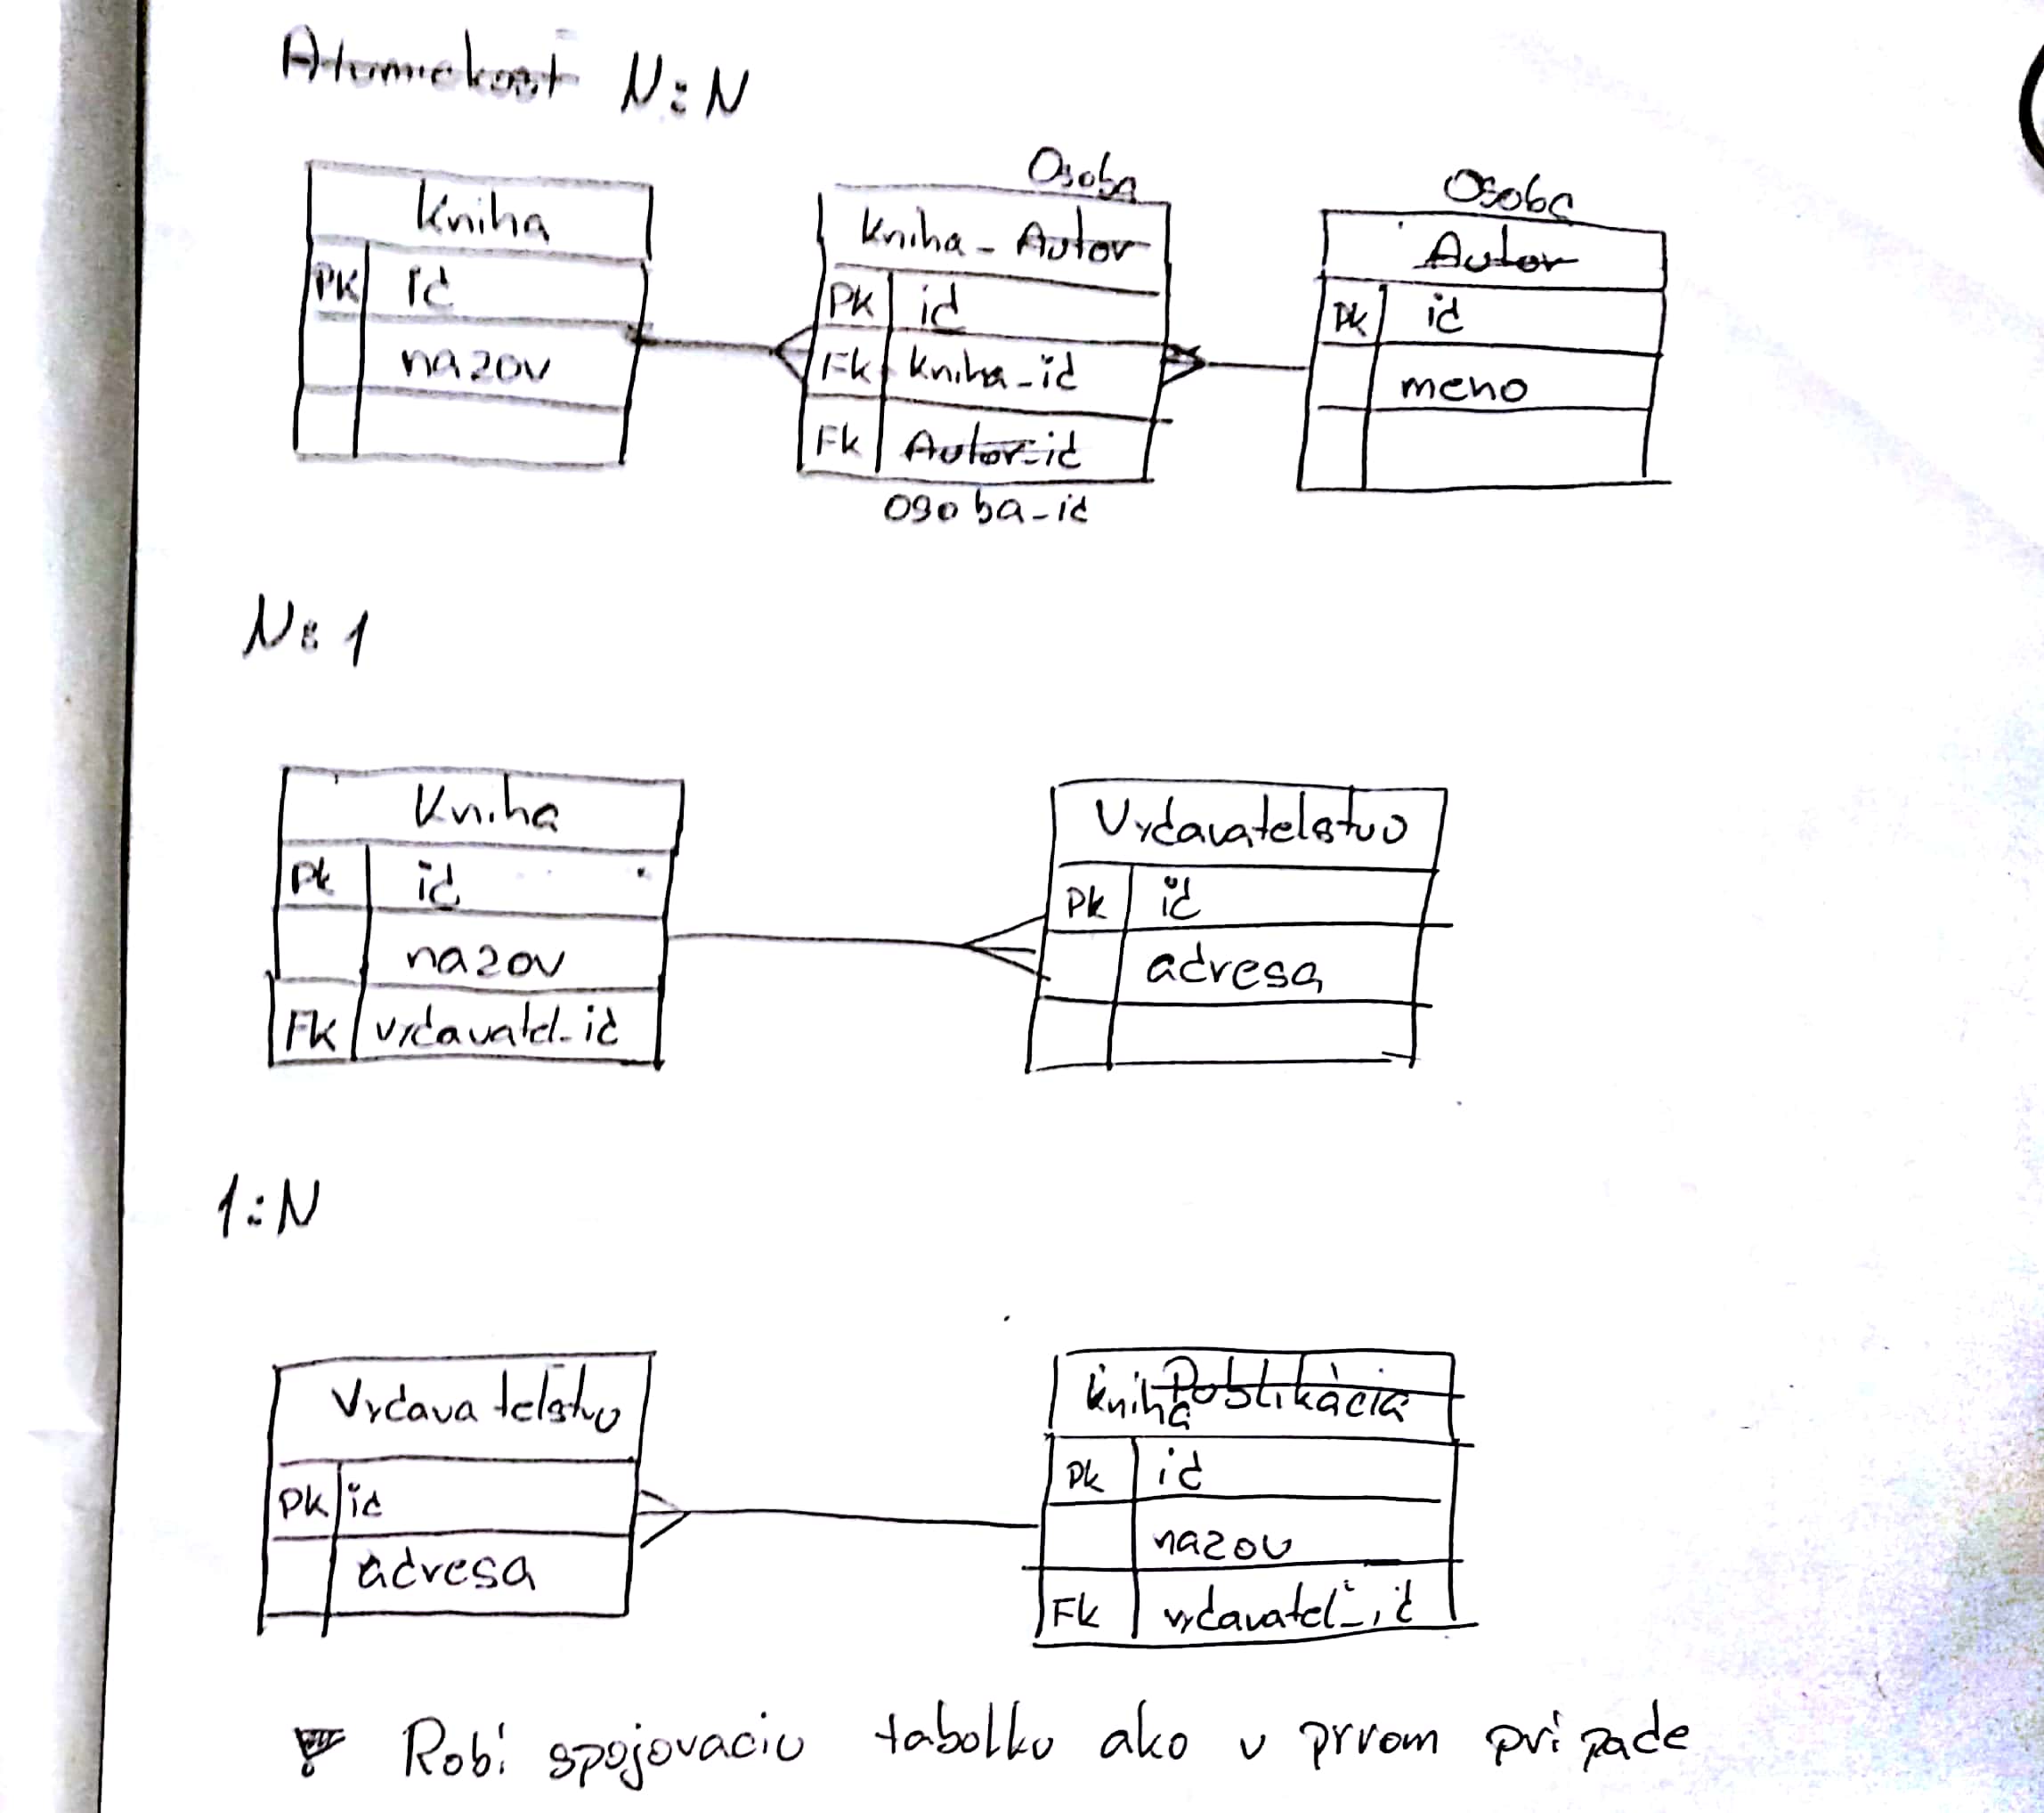 Atomickosť N:N
Osoba
Osoba
Kniha
Kniha-Autor
Autor
PK id
nazov
PK id
FK kniha_id
FK Autor_id
osoba_id
PK id
meno
N:1
Kniha
PK id
nazov
FK vydavatel_id
Vydavatelstvo
PK id
adresa
1:N
Vydavatelstvo
PK id
adresa
kniha Publikácia
PK id
nazov
FK vydavateľ_id
Robí spojovaciu tabolku ako v prvom pripade